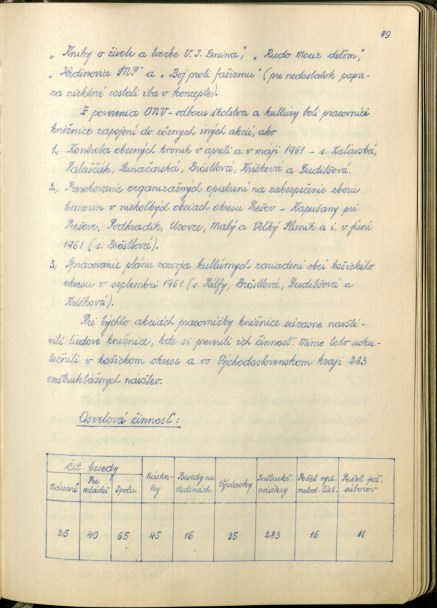 89
„Knihy o živote a tvorbe V. I. Lenina", „Ľudo Mocız deťom",
„Hrdinovia SNP" a „Boj proti fašizmu" (pre nedostatok papie-
ra niektoré zostali iba v koncepte).
Z poverenia ONV - odboru školstva a kultúry boli pracovníci
knižnice zapojení do rôznych iných akcií, ako
1, Kontrola obecných kroník v apríli a v máji 1961 - s. Kalavská,
Halaščák, Lunačanská, Bröstlová, Krišková a Gudišová.
2, Prevedenie organizačných opatrení na zabezpečenie zberu
kovov v niekoľkých obciach okresu Prešov - Kapušany pri
Prešove, Podhradík, Uzovce, Malý a Veľký Slivník a i. v júni
1961 (s. Bröstlová).
3, Spracovanie plánu rozvoja kultúrnych zariadení obcí košického
okresu v septembri 1961 (s. Pálfy, Bröstlová, Gudišová a
Krišková).
Pri týchto akciách pracovníčky knižnice súčasne navští-
vili ľudové knižnice, kde si preverili ich činnosť. Mimo toho usku-
točnili v košickom okrese a vo Východoslovenskom kraji 283
inštruktážnych návštev.
Osvetová činnosť:
Lit. besedy
Násten- Besedy na Výstavky Inštrukt. Počet vyd. Počet poč.
Pre mládež Spolu ky dedinách návštevy metod. list. súborov
25 40 65 45 16 35 283 16 11